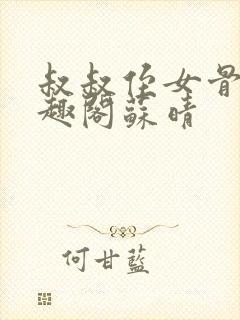 叔叔侄女骨
趣阁蘇晴
何甘蓝